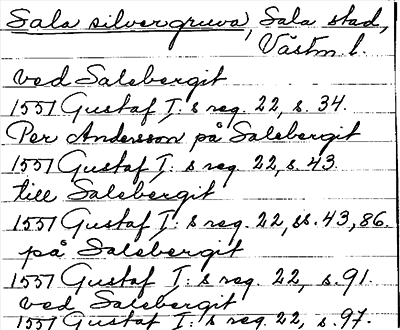 Sala silvergruva, Sala stad,
Västm. l.
ved Salsbergit
1551 Gustaf I: s reg. 22, s. 34.
Per Andersson på Salsbergit
1551 Gustaf I: s reg. 22, s. 43.
till Salsbergit
1551 Gustaf I: s reg. 22, ss. 43, 86.
på Salsbergit
1551 Gustaf I: s reg. 22, s. 91.
ved Salsbergit
1551 Gustaf I: s reg. 22, s. 97.